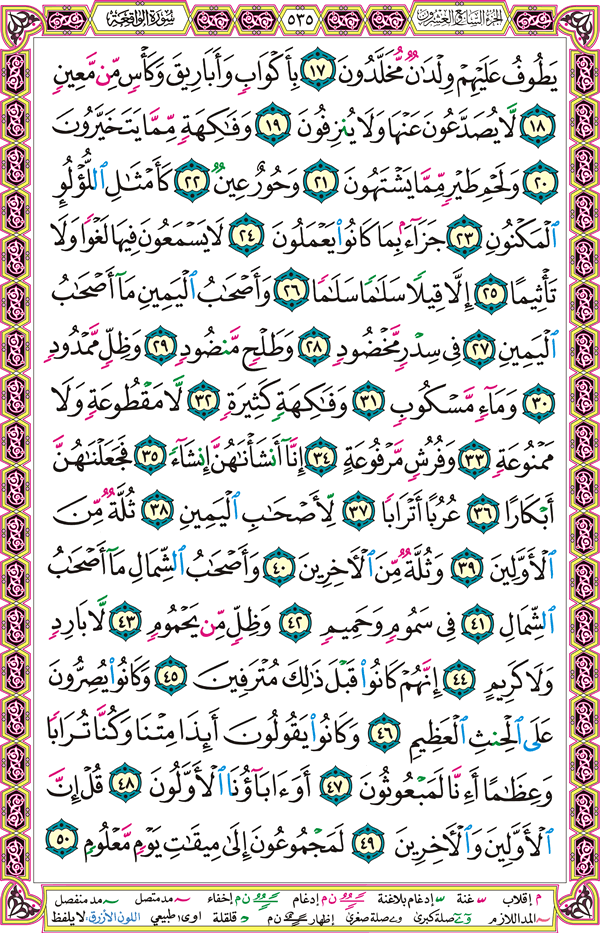 الجزء السابع والعشرون ٥٣٥ سورة الواقعة
يَطُوفُ عَلَيْهِمْ وِلْدَٰنٌ مُّخَلَّدُونَ ١٧ بِأَكْوَابٍ وَأَبَارِيقَ وَكَأْسٍ مِّن مَّعِينٍ
١٨ لَّا يُصَدَّعُونَ عَنْهَا وَلَا يُنزِفُونَ ١٩ وَفَٰكِهَةٍ مِّمَّا يَتَخَيَّرُونَ
٢٠ وَلَحْمِ طَيْرٍ مِّمَّا يَشْتَهُونَ ٢١ وَحُورٌ عِينٌ ٢٢ كَأَمْثَٰلِ ٱللُّؤْلُؤِ
ٱلْمَكْنُونِ ٢٣ جَزَآءًۢ بِمَا كَانُوا۟ يَعْمَلُونَ ٢٤ لَا يَسْمَعُونَ فِيهَا لَغْوًا وَلَا
تَأْثِيمًا ٢٥ إِلَّا قِيلًا سَلَٰمًا سَلَٰمًا ٢٦ وَأَصْحَٰبُ ٱلْيَمِينِ مَآ أَصْحَٰبُ
ٱلْيَمِينِ ٢٧ فِى سِدْرٍ مَّخْضُودٍ ٢٨ وَطَلْحٍ مَّنضُودٍ ٢٩ وَظِلٍّ مَّمْدُودٍ
٣٠ وَمَآءٍ مَّسْكُوبٍ ٣١ وَفَٰكِهَةٍ كَثِيرَةٍ ٣٢ لَّا مَقْطُوعَةٍ وَلَا
مَمْنُوعَةٍ ٣٣ وَفُرُشٍ مَّرْفُوعَةٍ ٣٤ إِنَّآ أَنشَأْنَٰهُنَّ إِنشَآءً ٣٥ فَجَعَلْنَٰهُنَّ
أَبْكَارًا ٣٦ عُرُبًا أَتْرَابًا ٣٧ لِّأَصْحَٰبِ ٱلْيَمِينِ ٣٨ ثُلَّةٌ مِّنَ
ٱلْأَوَّلِينَ ٣٩ وَثُلَّةٌ مِّنَ ٱلْءَاخِرِينَ ٤٠ وَأَصْحَٰبُ ٱلشِّمَالِ مَآ أَصْحَٰبُ
ٱلشِّمَالِ ٤١ فِى سَمُومٍ وَحَمِيمٍ ٤٢ وَظِلٍّ مِّن يَحْمُومٍ ٤٣ لَّا بَارِدٍ
وَلَا كَرِيمٍ ٤٤ إِنَّهُمْ كَانُوا۟ قَبْلَ ذَٰلِكَ مُتْرَفِينَ ٤٥ وَكَانُوا۟ يُصِرُّونَ
عَلَى ٱلْحِنثِ ٱلْعَظِيمِ ٤٦ وَكَانُوا۟ يَقُولُونَ أَئِذَا مِتْنَا وَكُنَّا تُرَابًا
وَعِظَٰمًا أَءِنَّا لَمَبْعُوثُونَ ٤٧ أَوَءَابَآؤُنَا ٱلْأَوَّلُونَ ٤٨ قُلْ إِنَّ
ٱلْأَوَّلِينَ وَٱلْءَاخِرِينَ ٤٩ لَمَجْمُوعُونَ إِلَىٰ مِيقَٰتِ يَوْمٍ مَّعْلُومٍ ٥٠
م إقلاب غنة إدغام بلاغنة ن م إدغام ن م إخفاء مد متصل مد منفصل
المد اللازم صلة كبرى صلة صغرى إظهار ن م قلقلة اوى: طبيعي اللون الأزرق: لا يلفظ